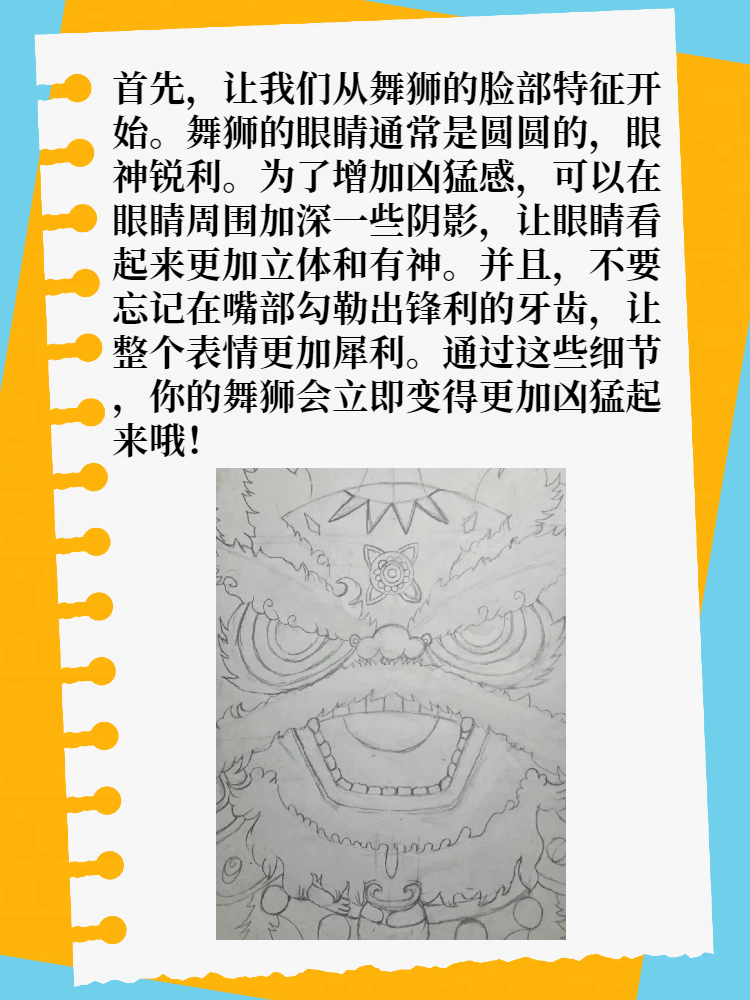 首先，让我们从舞狮的脸部特征开
始。舞狮的眼睛通常是圆圆的，眼
神锐利。为了增加凶猛感，可以在
眼睛周围加深一些阴影，让眼睛看
起来更加立体和有神。并且，不要
忘记在嘴部勾勒出锋利的牙齿，让
整个表情更加犀利。通过这些细节
，你的舞狮会立即变得更加凶猛起
来哦！